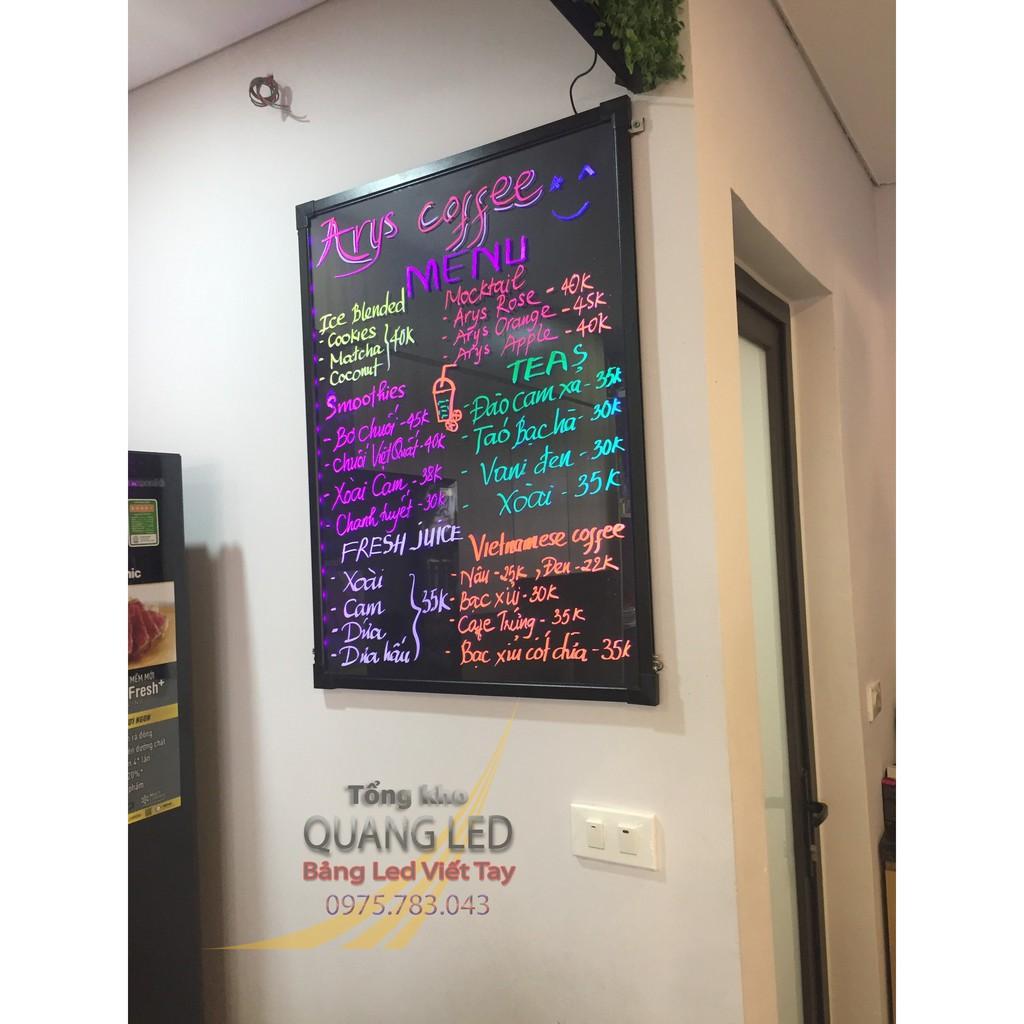 Arys coffee
MENU
Ice Blended
- Cookies
- Matcha
- Coconut
40k
Mocktail
- Arys Rose - 40k
- Arys Orange - 45k
- Arys Apple - 40k
Smoothies
- Bơ chuối - 45k
- chuối Việt Quất - 40k
- Xoài Cam - 38k
- Chanh tuyết - 30k
TEAS
- Đào cam xả - 35k
- Táo Bạc hà - 30k
- Vani đen - 30k
- Xoài - 35k
FRESH JUICE
- Xoài
- Cam
- Dứa
- Dưa hấu
35k
Vietnamese coffee
- Nâu - 25k, Đen - 22k
- Bạc xỉu - 30k
- Cafe Trứng - 35k
- Bạc xỉu cốt dừa - 35k
nic
MỀM MỚI
Fresh+
Tổng kho
QUANG LED
Bảng Led Viết Tay
0975.783.043